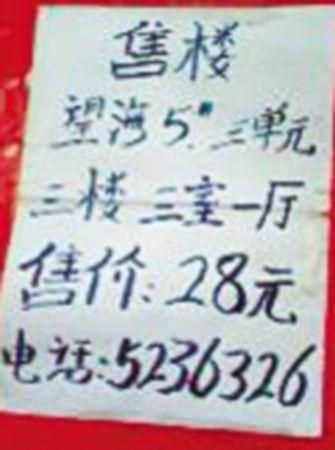 售楼
望海5#.三单元
三楼 三室一厅
售价:28元
电话:5236326